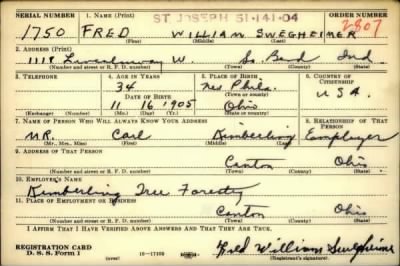 SERIAL NUMBER 1. NAME (Print) ST. JOSEPH 51-141-04 ORDER NUMBER
1750 FRED WILLIAM SWEGHEIMER 2807
(First) (Middle) (Last)
2. ADDRESS (Print)
1118 W. So. Bend Ind.
(Number and street or R. F. D. number) (Town) (County) (State)
3. TELEPHONE 4. AGE IN YEARS 5. PLACE OF BIRTH 6. COUNTRY OF CITIZENSHIP
34 New Phila.
DATE OF BIRTH (Town or county)
11 16 1905 Ohio U.S.A.
(Exchange) (Number) (Mo.) (Day) (Yr.) (State or country)
7. NAME OF PERSON WHO WILL ALWAYS KNOW YOUR ADDRESS 8. RELATIONSHIP OF THAT PERSON
MR. Carl Kimberling Employer
(Mr., Mrs., Miss) (First) (Middle) (Last)
9. ADDRESS OF THAT PERSON
Canton Ohio
(Number and street or R. F. D. number) (Town) (County) (State)
10. EMPLOYER'S NAME
Kimberling Tree Forestry
11. PLACE OF EMPLOYMENT OR BUSINESS
Canton Ohio
(Number and street or R. F. D. number) (Town) (County) (State)
I AFFIRM THAT I HAVE VERIFIED ABOVE ANSWERS AND THAT THEY ARE TRUE.
REGISTRATION CARD
D. S. S. Form 1 16-17105 Fred William Swegheimer
(Registrant's signature)